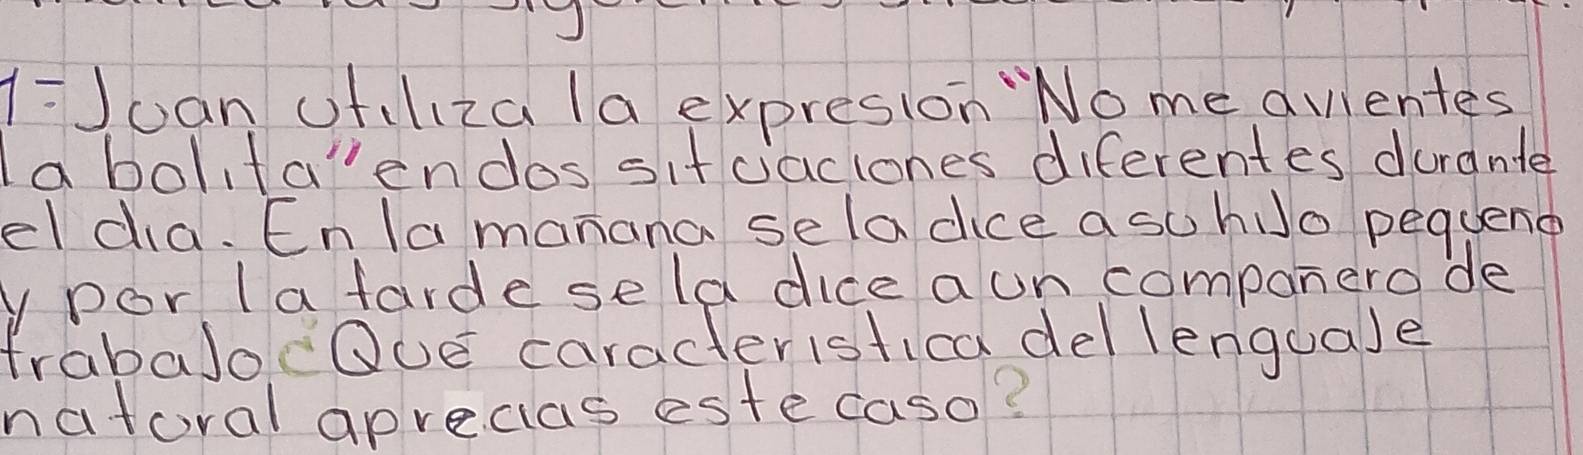 1=Juan utiliza la expresión "No me avientes
la bolita" en dos situaciones diferentes durante
el dia. En la mañana se la dice a su hijo pequeño
y por la tarde se la dice a un compañero de
trabajo ¿Qué caracteristica del lenguaje
natural aprecias este caso?